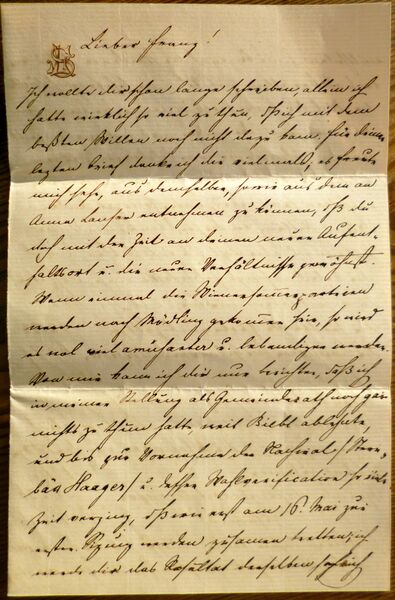 Lieber Franz!
Ich wollte dir schon lange schreiben, allein ich
hatte wirklich so viel zu thun, daß ich mit dem
beßten Willen noch nicht dazu kam. Für deinen
letzten Brief danke ich dir vielmals, es freute
mich sehr, aus demselben, sowie aus dem an
Anna Lauser entnehmen zu können, daß du
doch mit der Zeit an deinen neuen Aufent-
haltsort u. die neuen Verhältnisse gewöhnst.
Wenn einmal die Wienersommerpartien
werden nach Mödling gekommen sein, so wird
es wol viel amüsanter u. lebendiger werden.
Von mir kann ich dir nur berichten, daß ich
in meiner Stellung als Gemeinderath noch gar
nichts zu thun hatte, weil Biebl ablehnte,
und bis zur Vornahme der Nachwal
Haager/ u. dessen Walverification so viel
Zeit verging, daß wir erst am 16. Mai zur
ersten Sizung werden zusamentretten, ich
werde dir das Resultat derselben sogleich